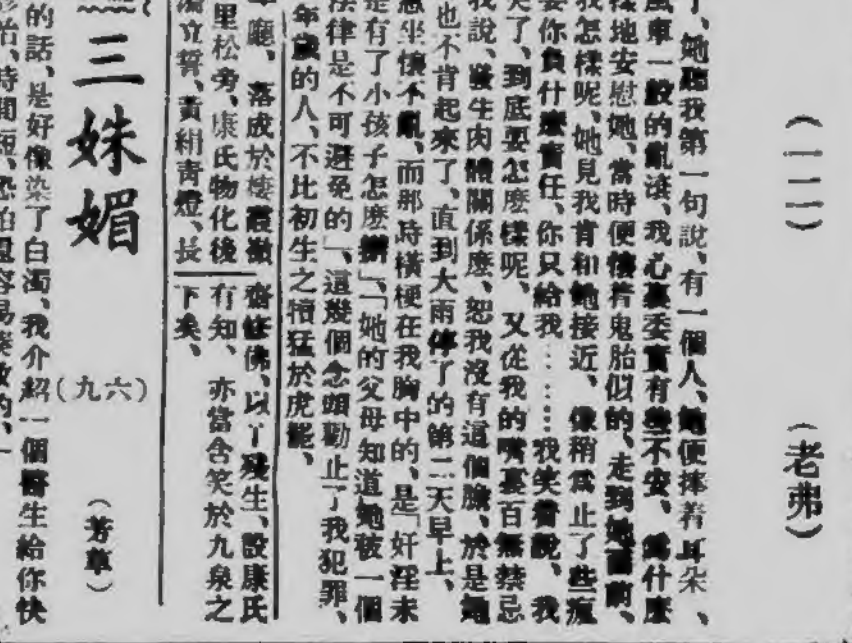 （一二）
（老弗）
了、她聽我第一句說、有一個人、她便捧着耳朵、
風車一般的亂滾、我心裏委實有些不安、爲什麼
樣地安慰她、當時便懷着鬼胎似的、走到她面前、
我怎樣呢、她見我肯和她接近、像稍爲止了些瘋
要你負什麼責任、你只給我……我笑着說、我
笑了、到底要怎麼樣呢、又從我的嘴裏百無禁忌
我說、發生肉體關係麼、恕我沒有這個膽、於是她
也不肯起來了、直到大雨停了的第二天早上、
坐懷不亂、而那時橫梗在我胸中的、是「奸淫未
是有了小孩子怎麽辦」、「她的父母知道她被一個
法律是不可避免的」、這幾個念頭勸止了我犯罪、
年歲的人、不比初生之犢猛於虎能、
廳、落成於棲霞嶺
里松旁、康氏物化後
立誓、黃絹靑燈、長
齋修佛、以了殘生、設康氏
有知、亦當含笑於九泉之
下矣、
三姝媚
（九六）
（芳草）
的話、是好像染了白濁、我介紹一個醫生給你快
診治、時間短、恐怕還容易奏效的、